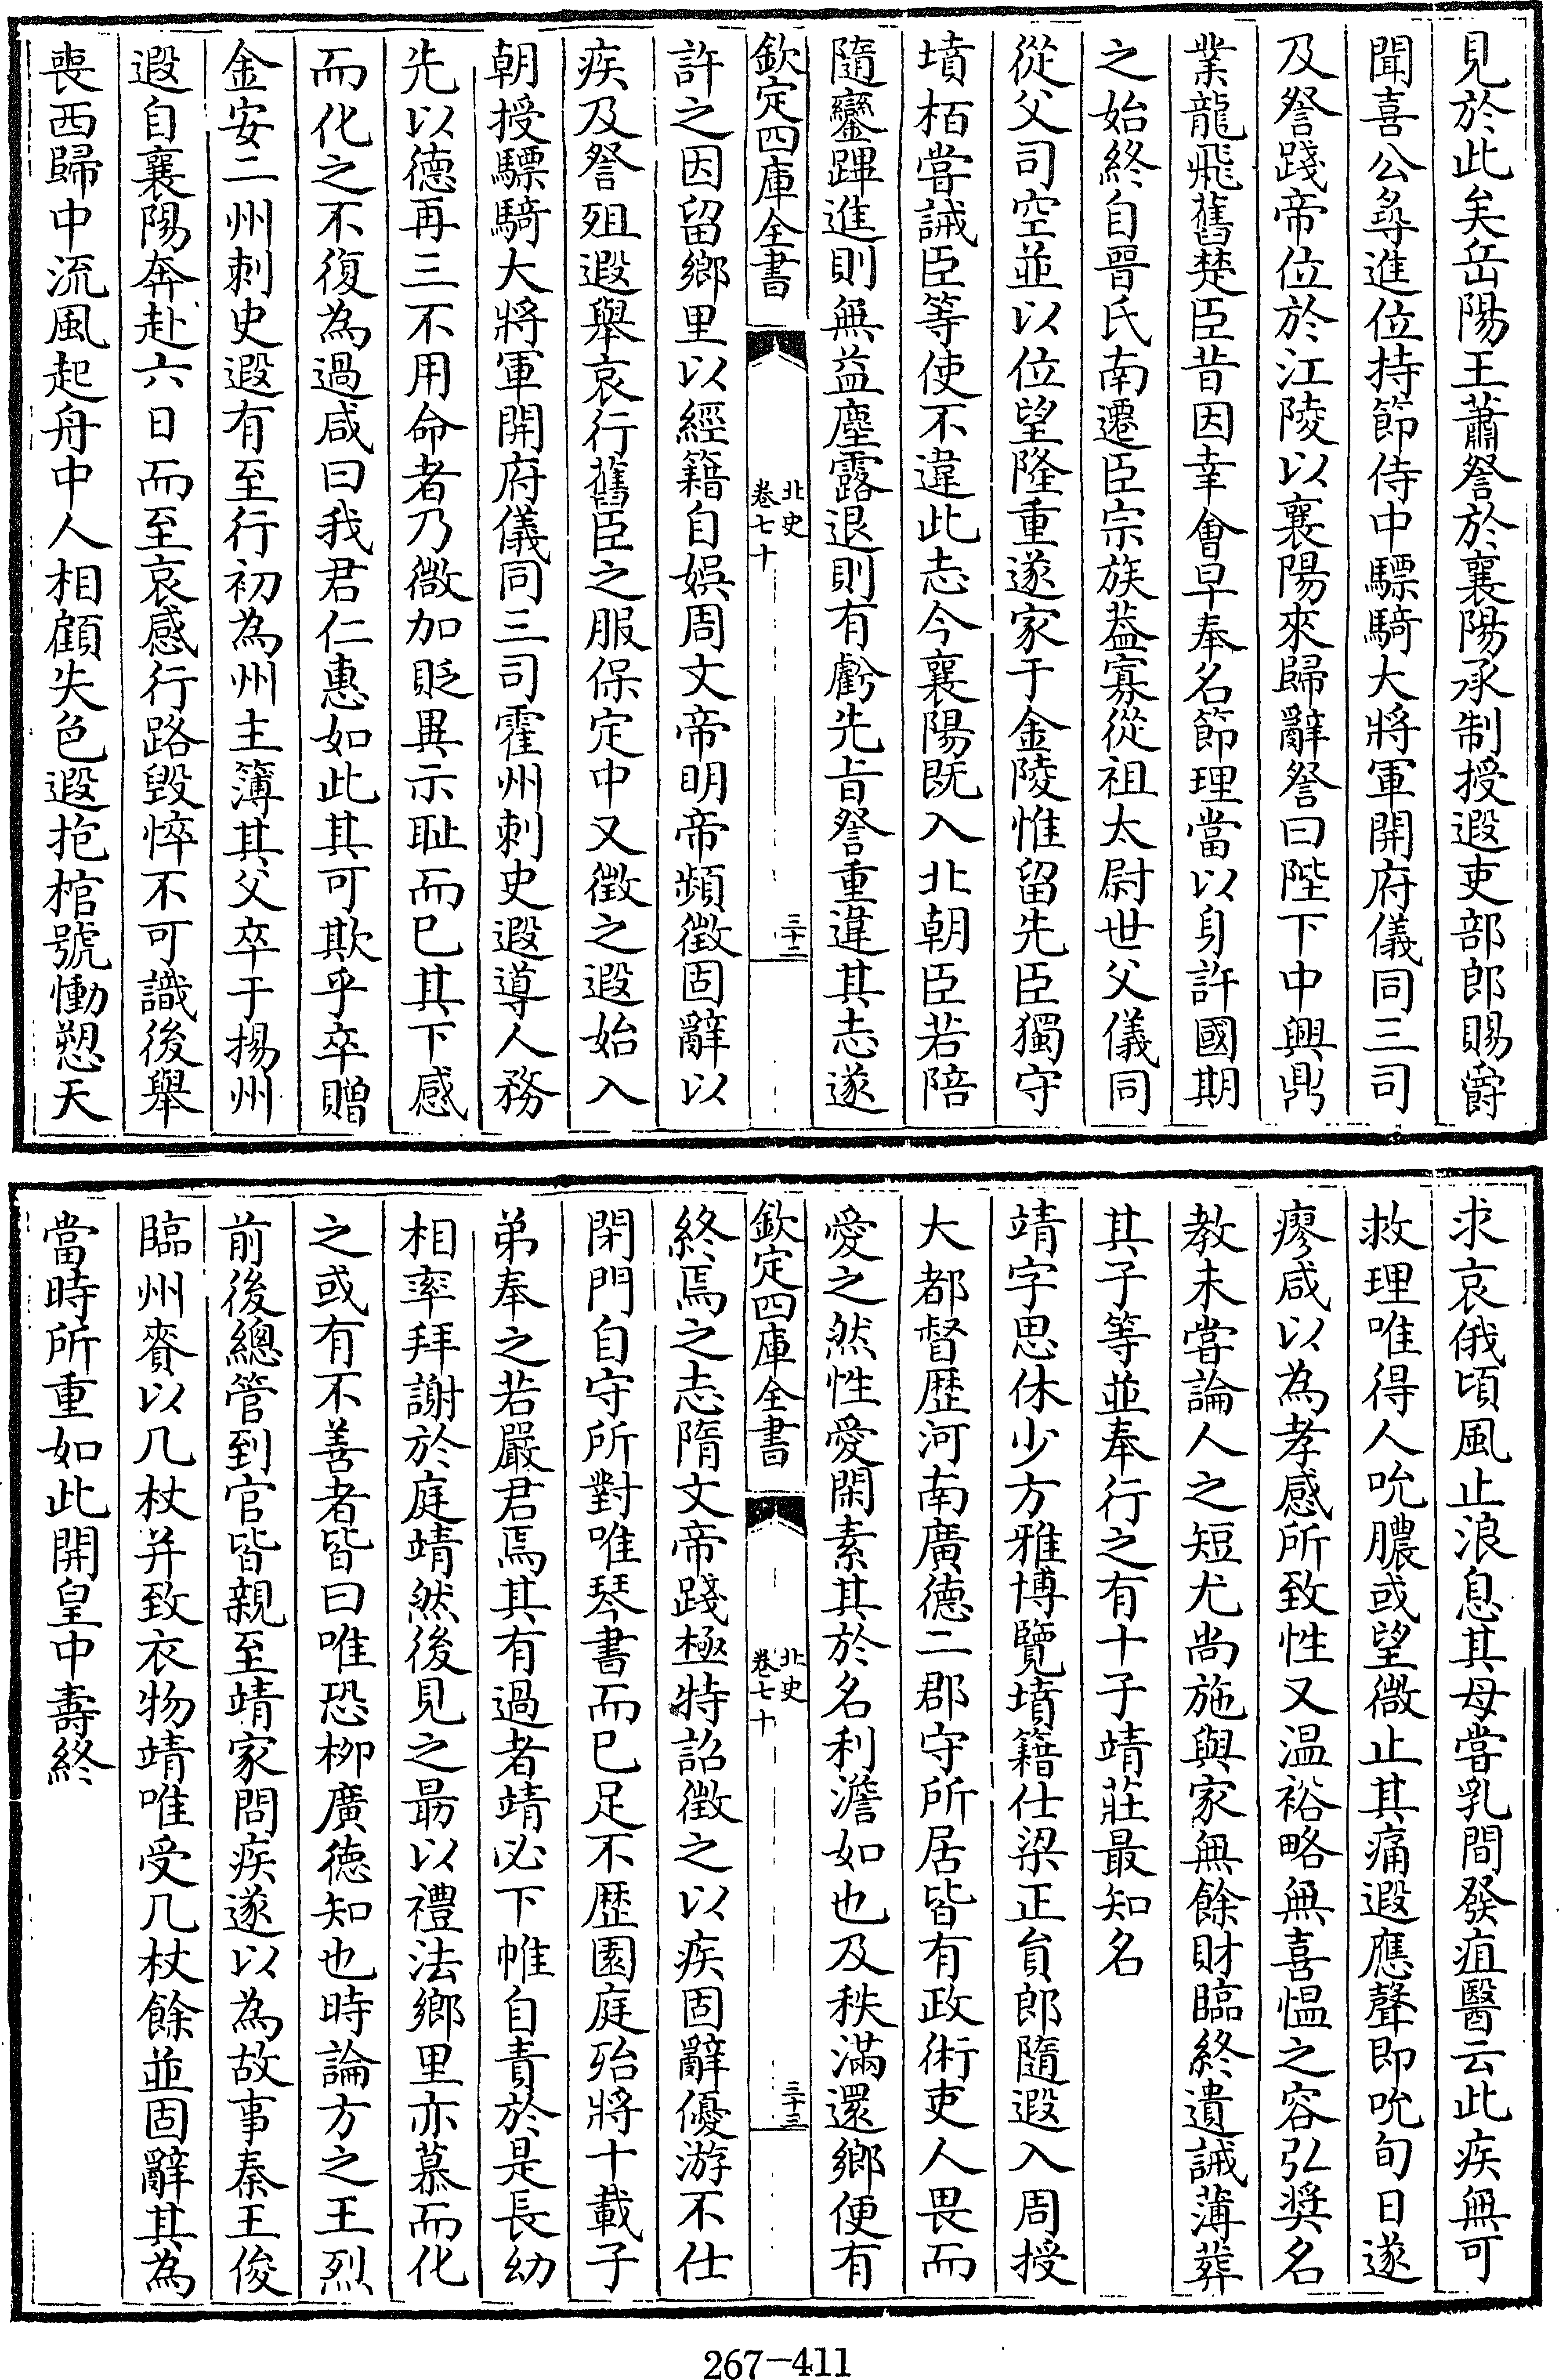 見於此矣岳陽王蕭詧於襄陽承制授遐吏部郎賜爵
聞喜公尋進位持節侍中驃騎大將軍開府儀同三司
及詧踐帝位於江陵以襄陽來歸辭詧曰陛下中興鼎
業龍飛舊楚臣昔因幸會早奉名節理當以身許國期
之始終自晉氏南遷臣宗族葢寡從祖太尉世父儀同
從父司空並以位望隆重遂家于金陵惟留先臣獨守
墳栢嘗誡臣等使不違此志今襄陽既入北朝臣若陪
隨鑾蹕進則無益塵露退則有虧先㫖詧重違其志遂
欽定四庫全書
北史
卷七十
三十二
許之因留鄉里以經籍自娯周文帝明帝頻徵固辭以
疾及詧殂遐舉哀行舊臣之服保定中又徵之遐始入
朝授驃騎大將軍開府儀同三司霍州刺史遐導人務
先以德再三不用命者乃微加貶異示耻而已其下感
而化之不復為過咸曰我君仁惠如此其可欺乎卒贈
金安二州刺史遐有至行初為州主簿其父卒于揚州
遐自襄陽奔赴六日而至哀感行路毀悴不可識後舉
喪西歸中流風起舟中人相顧失色遐抱棺號慟愬天
求哀俄頃風止浪息其母嘗乳間發疽醫云此疾無可
救理唯得人吮膿或望微止其痛遐應聲即吮旬日遂
瘳咸以為孝感所致性又温裕略無喜愠之容弘奬名
教未嘗論人之短尤尚施與家無餘財臨終遺誡薄葬
其子等並奉行之有十子靖莊最知名
靖字思休少方雅博覽墳籍仕梁正員郎隨遐入周授
大都督歴河南廣德二郡守所居皆有政術吏人畏而
愛之然性愛閑素其於名利澹如也及秩滿還鄉便有
欽定四庫全書
北史
卷七十
三十三
終焉之志隋文帝踐極特詔徵之以疾固辭優游不仕
閉門自守所對唯琴書而已足不歴園庭殆將十載子
弟奉之若嚴君焉其有過者靖必下帷自責於是長幼
相率拜謝於庭靖然後見之最以禮法鄉里亦慕而化
之或有不善者皆曰唯恐栁廣德知也時論方之王烈
前後總管到官皆親至靖家問疾遂以為故事秦王俊
臨州賚以几杖并致衣物靖唯受几杖餘並固辭其為
當時所重如此開皇中壽終
267-411